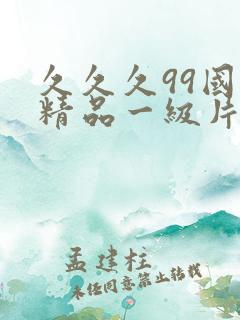 久久久99國
精品一級片
孟建柱
未经同意禁止转载